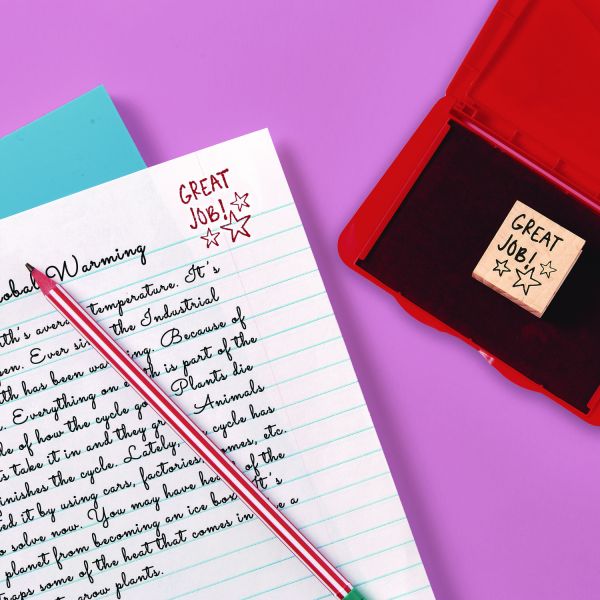 GREAT
JOB!
obal Warming
th's avera temperature. It's
en. Ever si the Industrial
th has been wa ng. Because of
. Everything on e th is part of the
de of how the cycle go Plants die
s take it in and they gr Animals
inishes the cycle. Lately, cycle has
ed it by using cars, factories, omes, etc.
o solve now. You may have hea of the
planet from becoming an ice box. It's
raps some of the heat that comes in e a
grow plants.
GREAT
JOB!